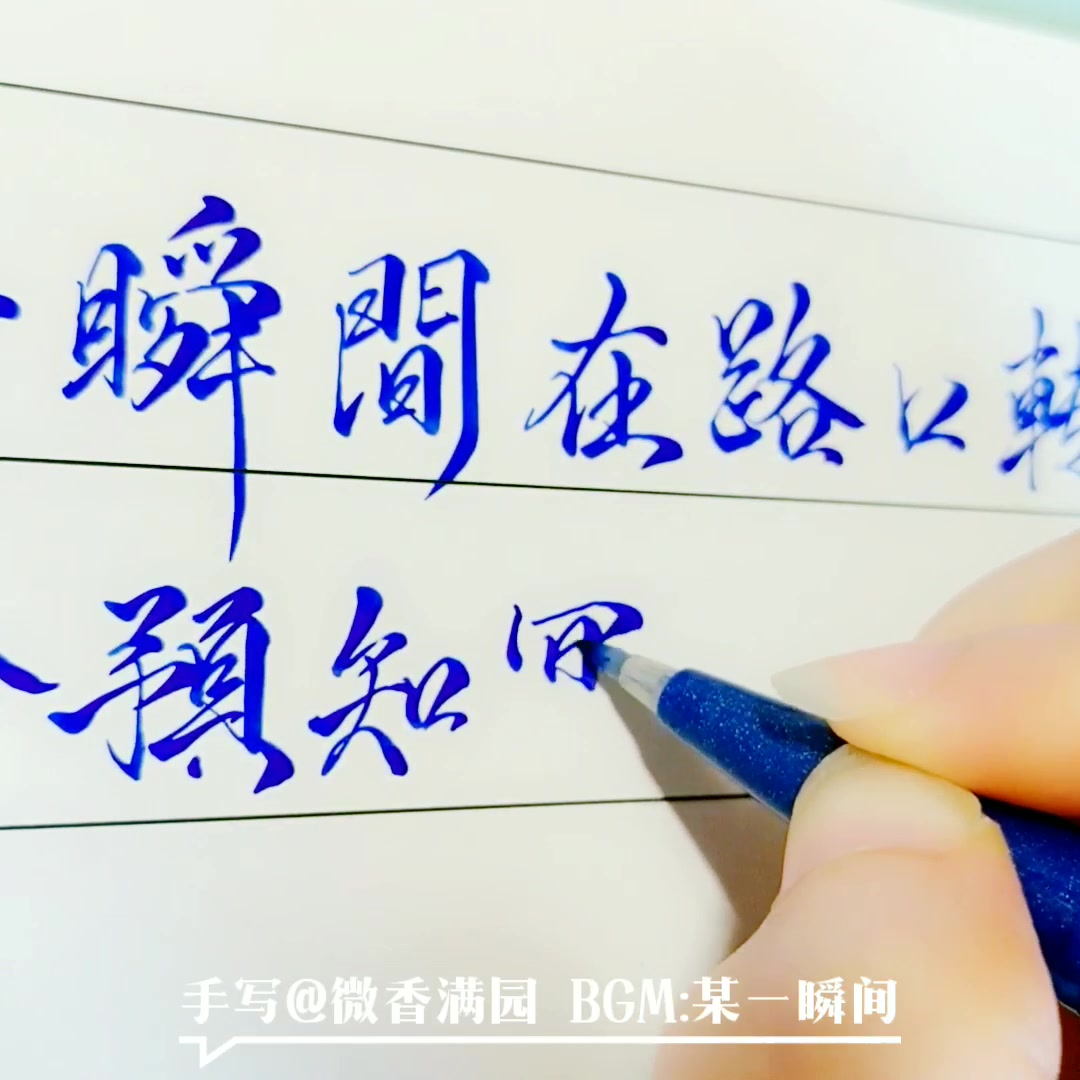 瞬間在路口轉
預知
手写@微香满园 BGM:某一瞬间